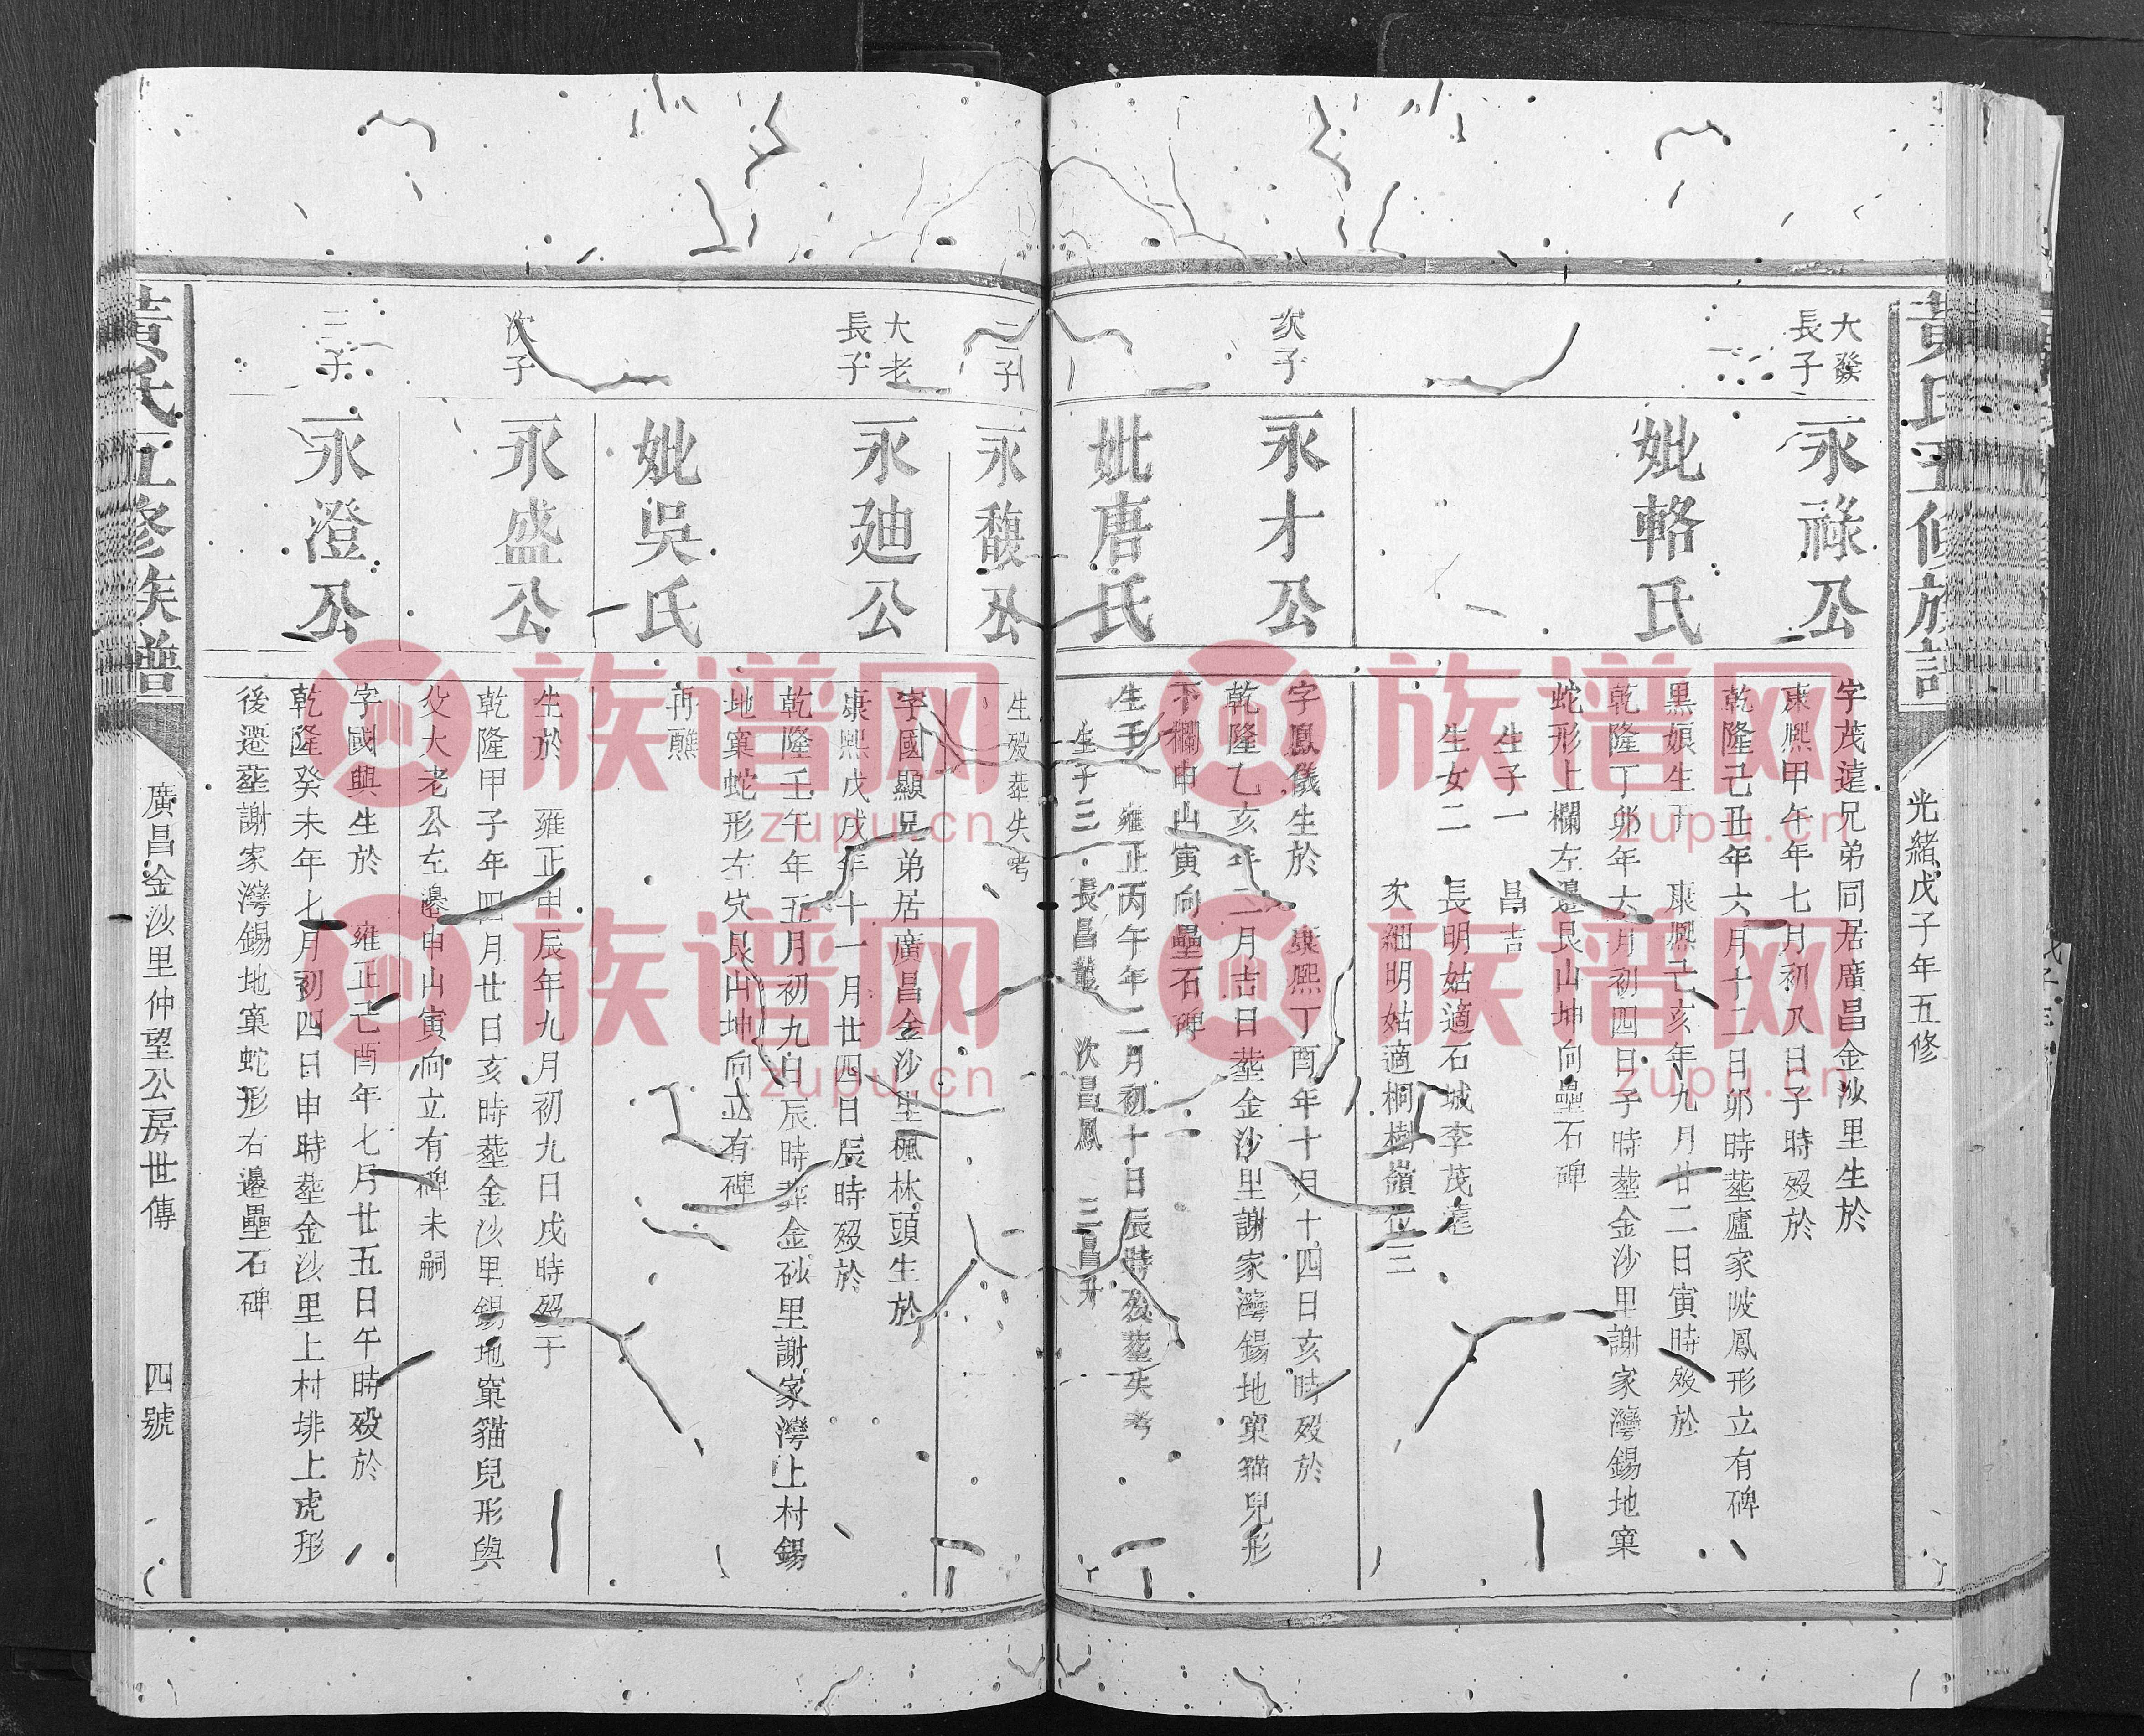 黃氏五修族譜
光緒戊子年五修
大發
長子
永祿公
字茂遠兄弟同居廣昌金沙里生於
康熙甲午年七月初八日子時歿於
乾隆己丑年六月十二日卯時塟廬家陂鳳形立有碑
妣輅氏
黑娘生于 康熙己亥年九月廿二日寅時歿於
乾隆丁卯年六月初四日子時塟金沙里謝家灣錫地窠
蛇形上欄左邊艮山坤向壘石碑
生子一 昌吉
生女二 長明姑適石城李茂蘢
次細明姑適桐樹嶺伍三
次子
永才公
字鳳儀生於 康熙丁酉年十月十四日亥時歿於
乾隆乙亥年二月吉日塟金沙里謝家灣錫地窠貓兒形
下欄申山寅向壘石碑
妣唐氏
生于 雍正丙午年二月初十日辰時歿塟失考
生子三 長昌 次昌鳳 三昌升
三子
永馥公
生歿葬失考
大老
長子
永廸公
字國顯兄弟居廣昌金沙里楓林頭生於
康熙戊戌年十一月廿四日辰時歿於
乾隆壬午年五月初九日辰時葬金砂里謝家灣上村錫
地窠蛇形左穴艮山坤向立有碑
妣吳氏
再醮
次子
永盛公
生於 雍正甲辰年九月初九日戌時歿于
乾隆甲子年四月廿日亥時塟金沙里錫地窠貓兒形與
父大老公左邊申山寅向立有碑未嗣
三子
永澄公
字國興生於 雍正己酉年七月廿五日午時歿於
乾隆癸未年七月初四日申時塟金沙里上村排上虎形
後遷塟謝家灣錫地窠蛇形右邊壘石碑
黃氏五修族譜
廣昌金沙里仲望公房世傳
四號
族谱网
zupu.cn
族谱网
zupu.cn
族谱网
zupu.cn
族谱网
zupu.cn